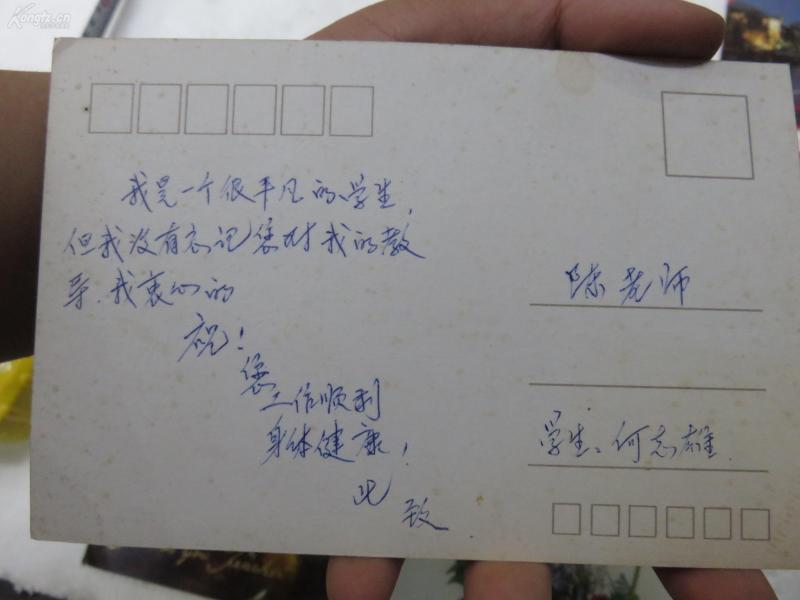 Kongfz.cn
我是一个很平凡的学生,
但我没有忘记您对我的教
导.我衷心的
祝!
您
工作顺利
身体健康,
此
致
陈老师
学生:何志雄.